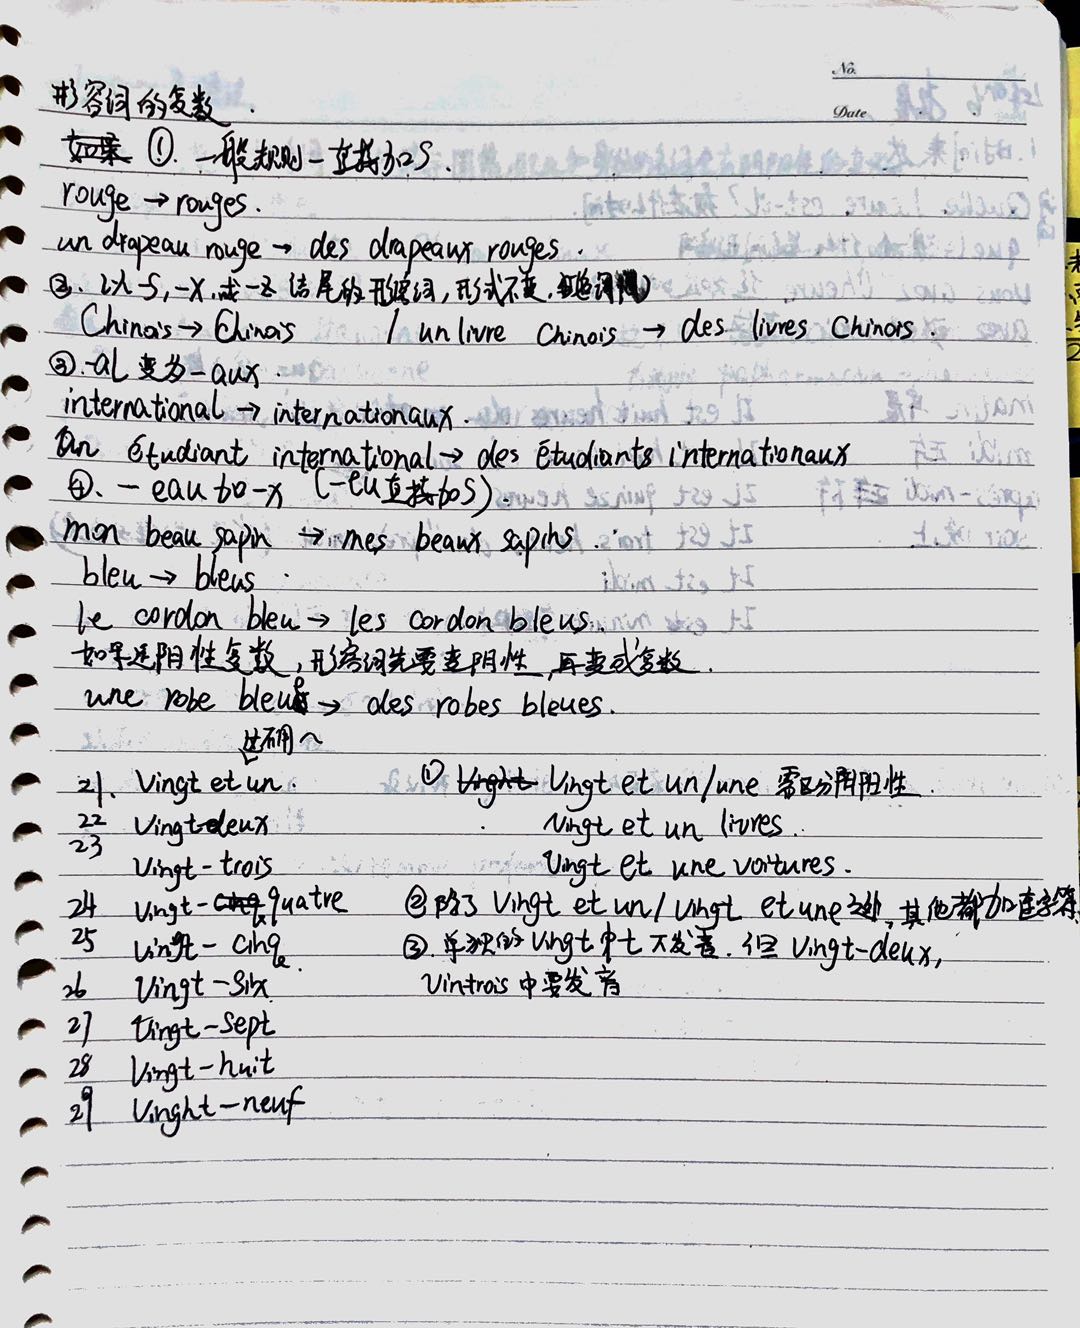 No.
Date
形容词的复数.
如果 ①. 一般规则一直接加s.
rouge → rouges.
un drapeau rouge → des drapeaux rouges.
②. 以-s, -x, 或-z 结尾的形容词, 形式不变.
Chinois → Chinois / un livre Chinois → des livres Chinois.
③. -al 变为-aux.
international → internationaux.
Un étudiant international → des étudiants internationaux
④. -eau 加-x (-eu直接加s).
mon beau sapin → mes beaux sapins.
bleu → bleus.
le cordon bleu → les cordon bleus.
如果是阴性复数, 形容词先要变阴性, 再变成复数.
une robe bleue → des robes bleues.
这不用
21. Vingt et un. ① Vinght Vingt et un/une 需区分阴阳性.
22 Vingt-deux Vingt et un livres.
23 Vingt-trois Vingt et une voitures.
24 Vingt-cinq quatre ② 除了 Vingt et un/ Vingt et une 之外, 其他都加连字符
25 Vingt-cinq ③. 单独的 Vingt 中t 不发音. 但 Vingt-deux,
26 Vingt-six Vintrois 中要发音
27 Vingt-sept
28 Vingt-huit
29 Vinght-neuf